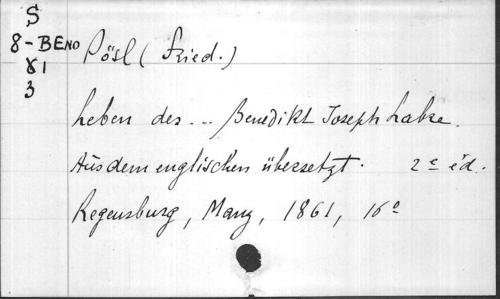 S
8-BENO
81
3
Pösl (Fried.)
Leben des ... Benedikt Joseph Labre.
Aus dem englischen übersetzt. 2e éd.
Regensburg, Manz, 1861, 16o